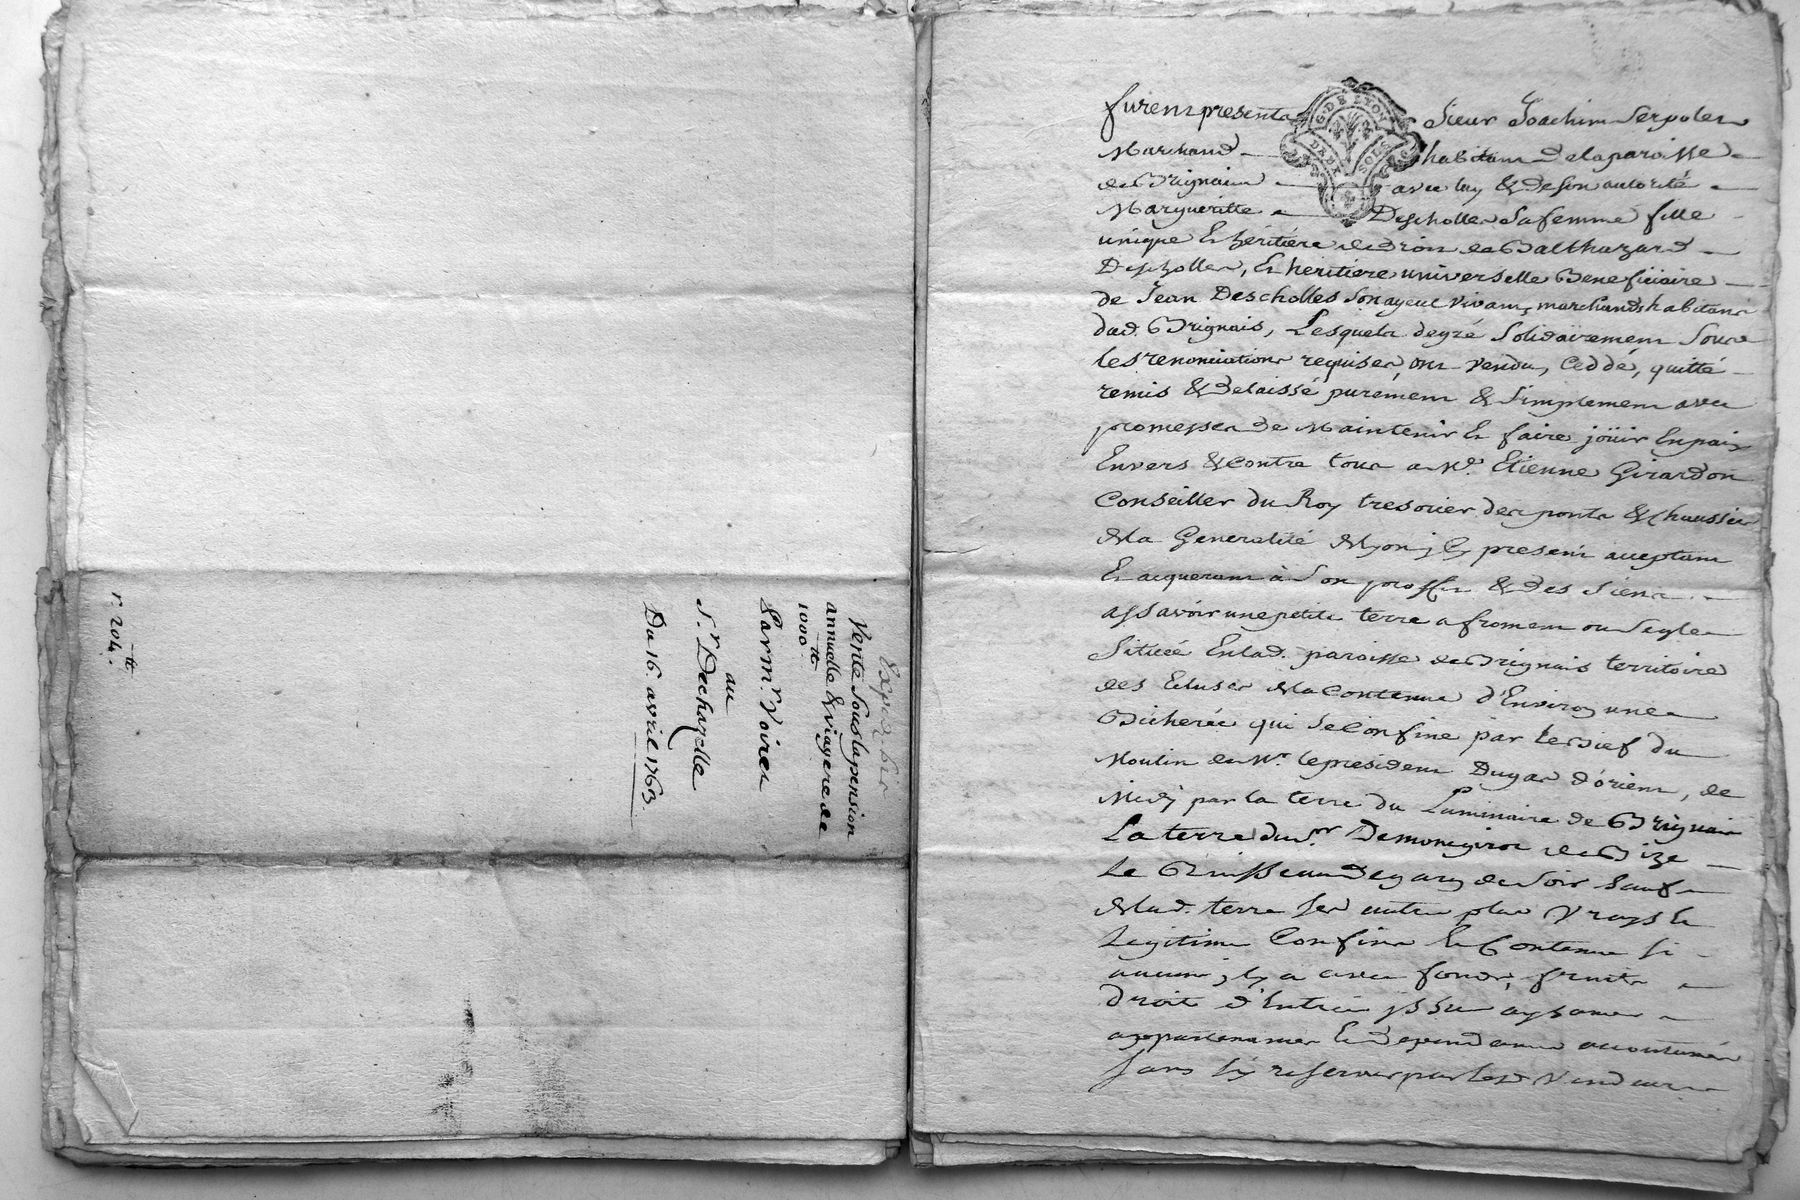 Vente sous la pension
annuelle & viagere de
1000 tt
Par mr. Voires
au
Sr. Dechazelle
Du 16. avril 1763.
r. 204. tt
G. DE LYON
DEUX SOLS
furent presents Sieur Joachim Serpolet
Marchand habitant de la paroisse
de Brignais avec luy & de son autorité
Margueritte Descholles sa femme fille
unique Et héritiére de droit de Balthazard
Descholles, Et héritiere universelle Beneficiaire
de Jean Descholles son ayeul vivant marchands habitants
dud. Brignais, Lesquels de gré Solidairement Sous
les renonciations requises, ont vendu, Ceddé, quitté
remis & Delaissé purement & Simplement avec
promesses de Maintenir Et faire joüir En paix
Envers & Contre tous a Me. Etienne Girardon
Conseiller du Roy tresorier des ponts & Chaussées
de la Generalité de Lyon jcy present acceptant
Et acquerant à Son proffit & des Siens
assavoir une petite terre a froment ou Seigle
Situeé En lad. paroisse de Brignais territoire
des Ecluses de la Contenue d'Environ une
Bicherée qui Se Confine par le bief du
Moulin de Mr. le president Dugas d'orient, de
Midy par la terre du Luminaire de Brignais
La terre du Sr. de Bize
Le Ruisseau de gary de Soir Sauf
de lad. terre Ses autres plus Vrays Et
Legitimes Confins Et Contenue Si
aucuns jl y a avec fonds, fruits
Droits d'Entrée jssue aysances
appartenances Et Dependances accoutumées
Sans Sy reserver par lesd. Vendeurs